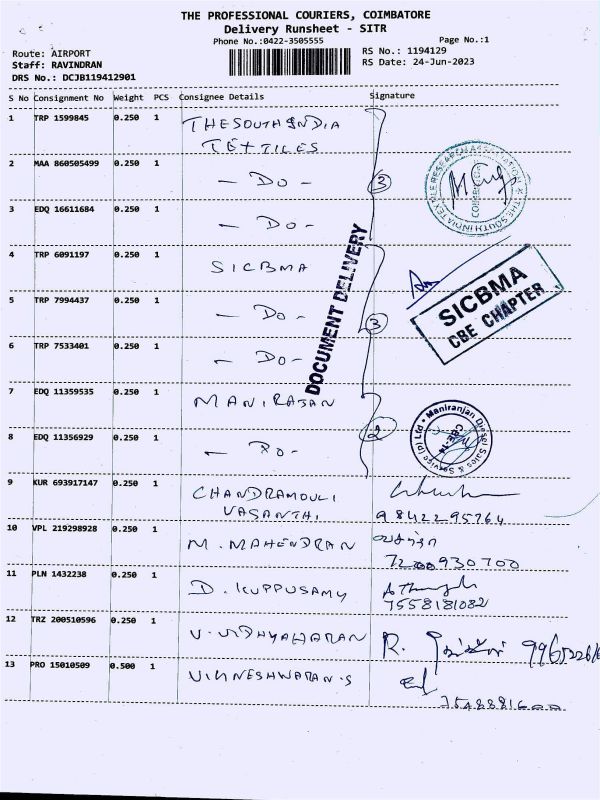 THE PROFESSIONAL COURIERS, COIMBATORE
Delivery Runsheet - SITR
Phone No.:0422-3505555
Page No.:1
Route: AIRPORT
RS No.: 1194129
Staff: RAVINDRAN
RS Date: 24-Jun-2023
DRS No.: DCJB119412901
S No Consignment No Weight PCS Consignee Details Signature
1 TRP 1599845 0.250 1 THE SOUTH INDIA
TEXTILES
2 MAA 860505499 0.250 1 - DO -
3 EDQ 16611684 0.250 1 - DO -
3
THE SOUTH INDIA TEXTILE RESEARCH ASSOCIATION
COIMBATORE
4 TRP 6091197 0.250 1 SICBMA
5 TRP 7994437 0.250 1 - DO -
6 TRP 7533401 0.250 1 - DO -
3
DOCUMENT DELIVERY
SICBMA
CBE CHAPTER
7 EDQ 11359535 0.250 1 MANIRAJAN
8 EDQ 11356929 0.250 1 - DO -
2
Maniranjan Diesel Sales & Service (p) Ltd
CBE-14
9 KUR 693917147 0.250 1 CHANDRAMOULI
VASANTHI
9842295764
10 VPL 219298928 0.250 1 M. MAHENDRAN
7200930700
11 PLN 1432238 0.250 1 D. KUPPUSAMY
7558181082
12 TRZ 200510596 0.250 1 V. VIDHYAHARAN R.
13 PRO 15010509 0.500 1 VIKNESHWARAN'S
7548881600